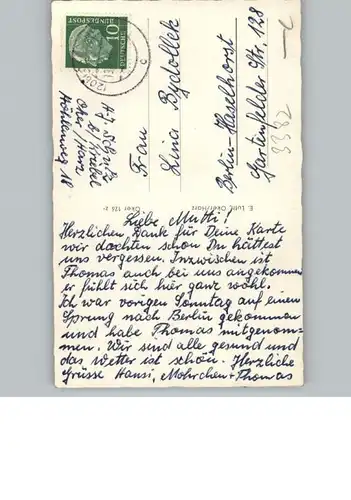 Liebe Mutti!
Herzlichen Dank für Deine Karte
wir dachten schon Du hättest
uns vergessen. Inzwischen ist
Thomas auch bei uns angekommen
er fühlt sich hier ganz wohl.
Ich war vorigen Sonntag auf einen
Sprung nach Berlin gekommen
und habe Thomas mitgenom-
men. Wir sind alle gesund und
das Wetter ist schön. Herzliche
Grüsse Hansi, Mohrchen + Thomas
E. Luh, Oker/Harz
Oker 125
Frau
Lina Bydollek
Berlin-Haselhorst
Gartenfelder Str. 128
Oker/Harz
Höhlenweg 18
DEUTSCHE
BUNDESPOST
10
3332